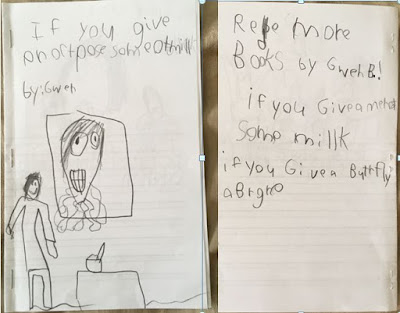 If you give
an oftpose some otmilk
by: Gweh
Rege more
Books by Gweh B!
if you Give a
some millk
if you Give a Buttfly
a